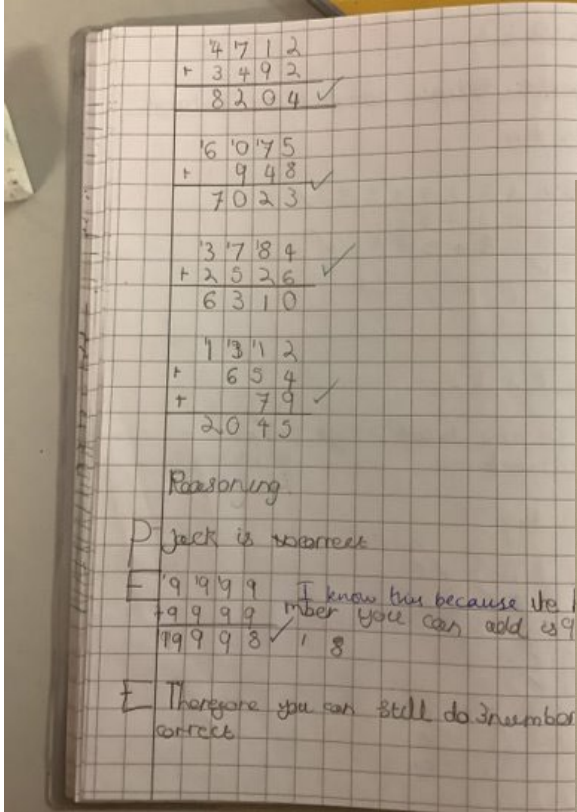 4712
+ 3492
8204 ✓
6075
+ 948 ✓
7023
3784
+ 2526 ✓
6310
1312
+ 654
+ 79 ✓
2045
Reasoning
P Jack is
E 9999 I know this because the
+9999 mber you can add is 9
19998 ✓ 1 8
E Therefore you can still do 3number
correct